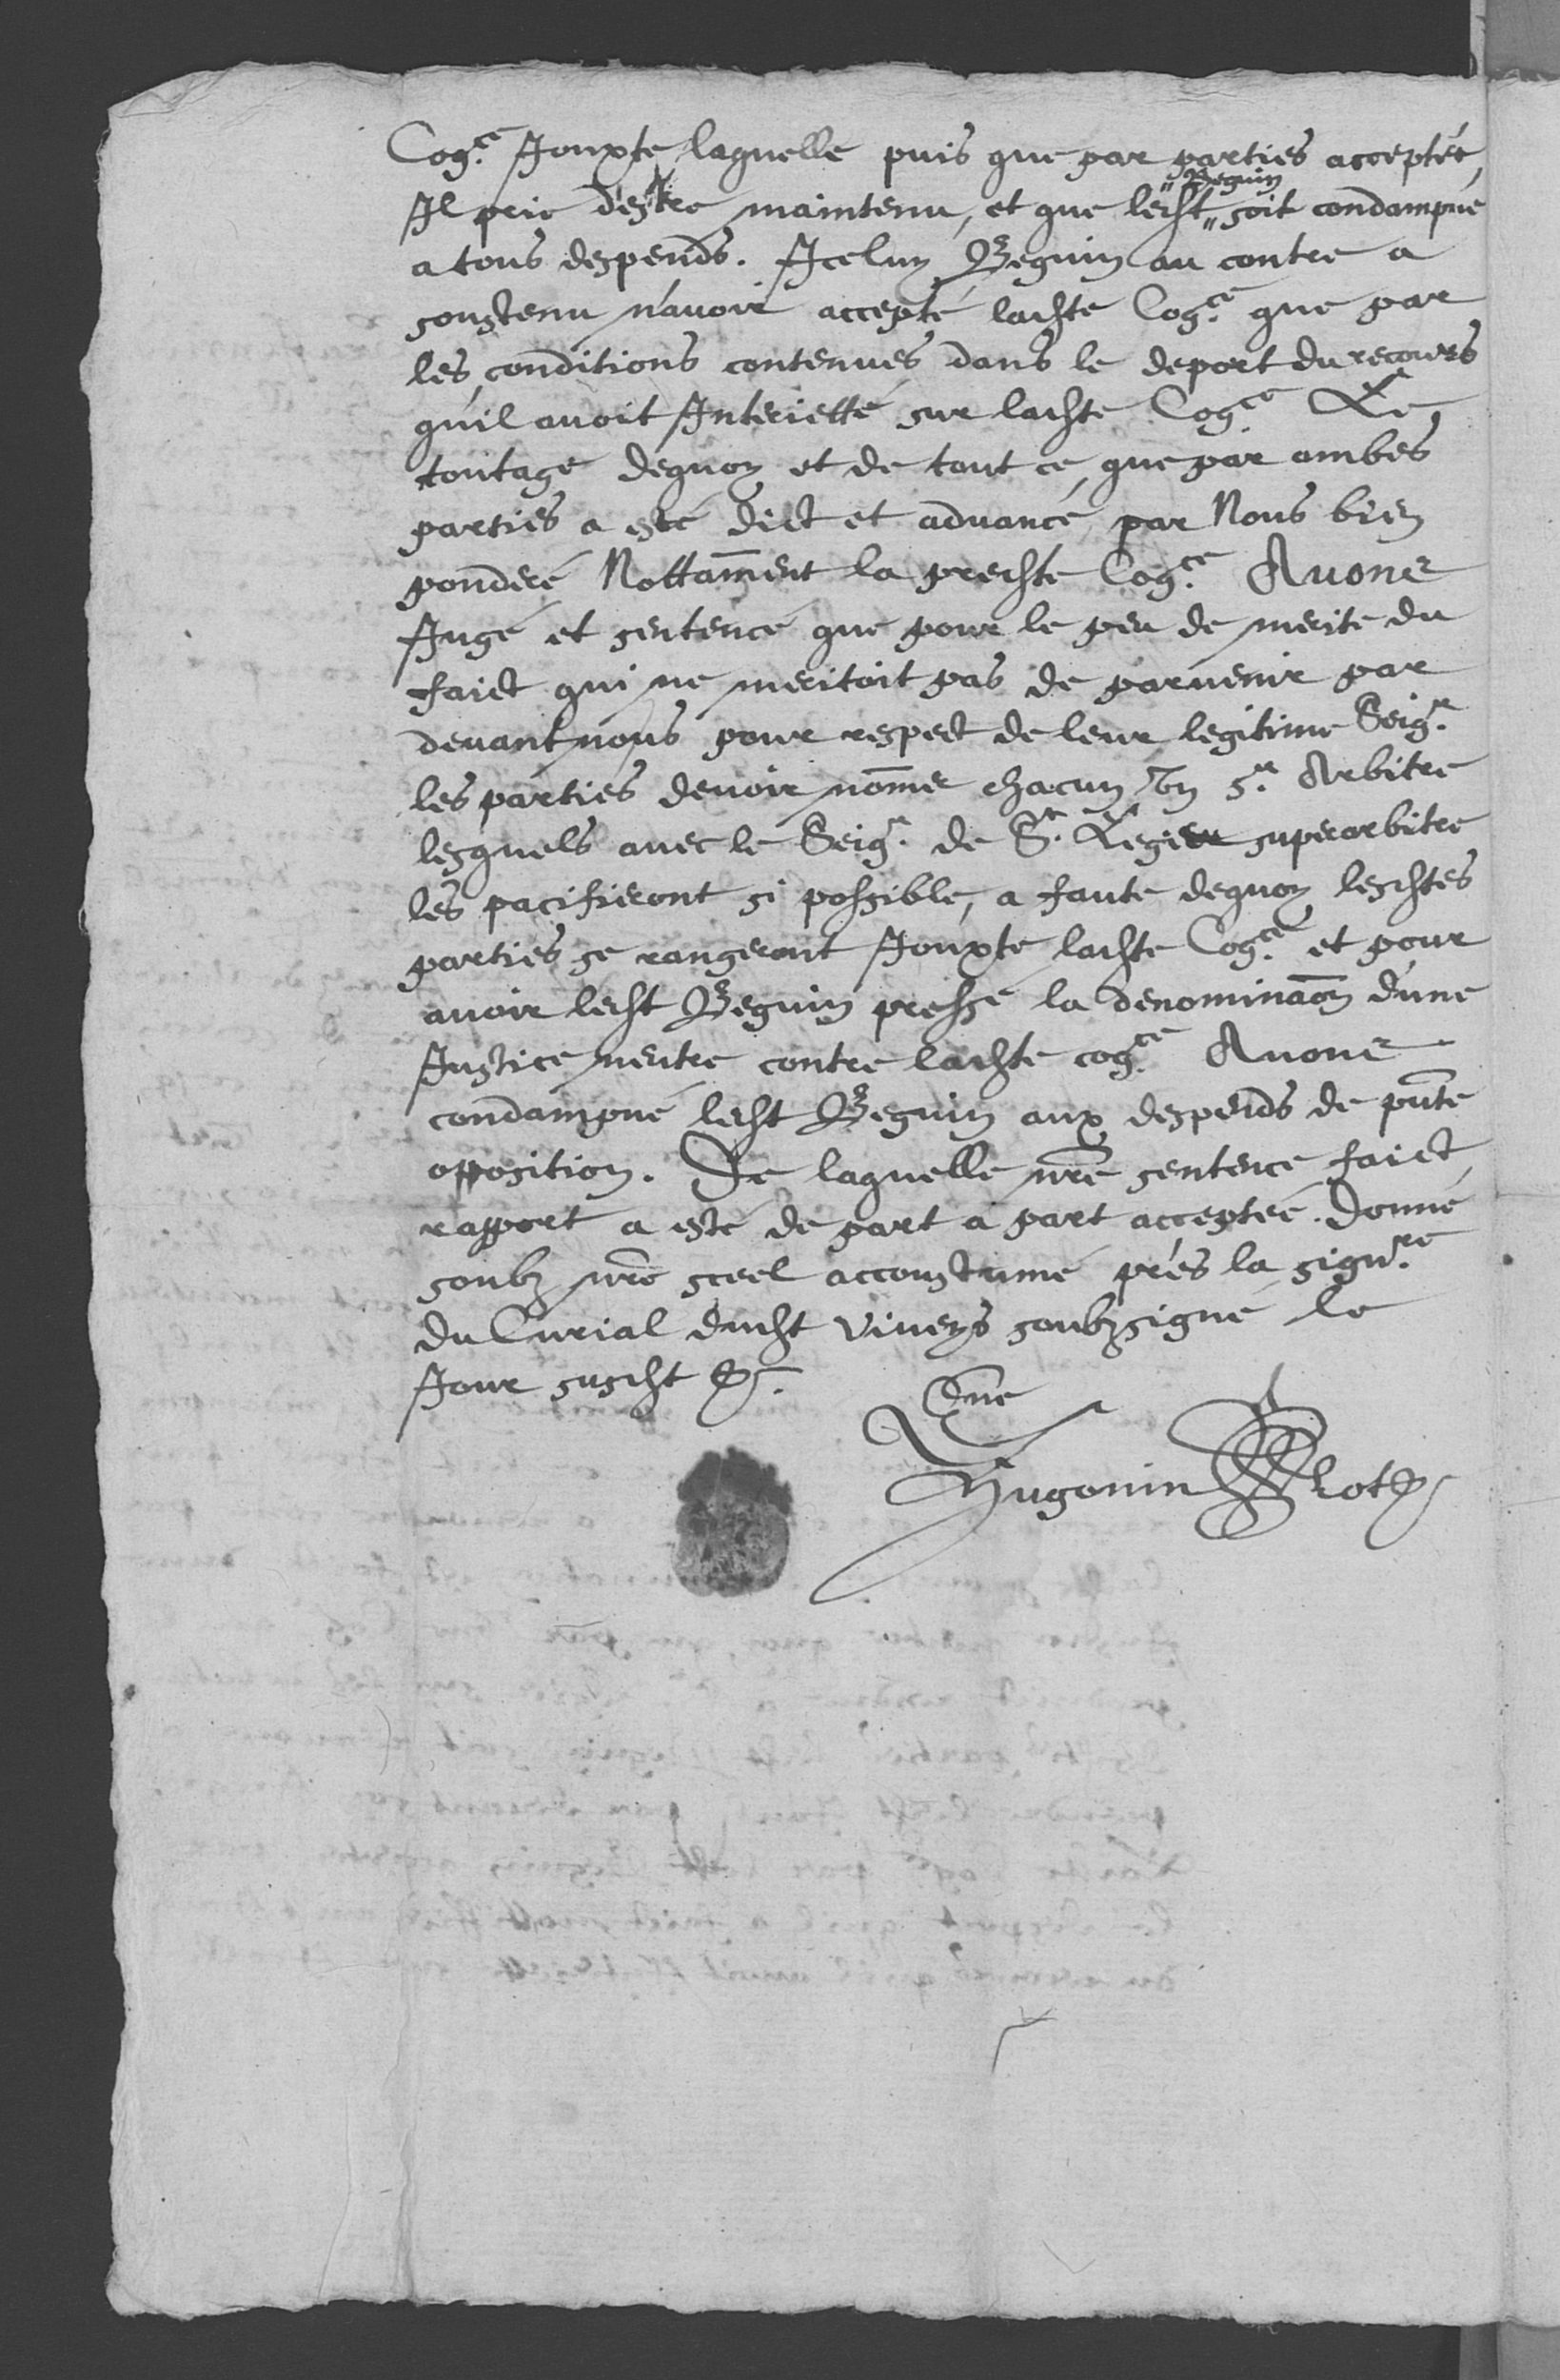 Cog.ce Jouxte laquelle puis que par parties acceptée,
Il prie destre maintenu, et que ledt „ Beguin „ soit condampné
a tous despends. Iceluy Beguin au contre a
soustenu n'auoir accepté ladte Cog.ce que par
les conditions contenues dans le deport du recours
quil auoit Interietté sur ladte Cog.ce Le
toutage dequoy et de tout ce que par ambes
parties a esté dict et aduancé, par Nous bien
ponderé Nottam̄ent la predte Cog.ce Auons
Jugé et sentencé que pour le peu de merite du
faict qui ne meritoit pas de paruenir par
deuant nous pour respect de leur legitime Seig.r
les parties deuoir nōmer chacun vn s.r Arbitre
lesquels auec le Seig.r de S.t Legier superarbitre
les pacifieront si possible, a faute dequoy lesdtes
parties se rangeront Jouxte ladte Cog.ce et pour
auoir ledt Beguin pressé la denominaōn d'une
Justice neutre contre ladte cog.ce Auons
condampné ledt Beguin aux despends de pn̄te
opposition. De laquelle nr̄e sentence faict
rapport a esté de part a part acceptée. Donné
soubz nr̄e sceel accoustumé prés la sign.re
du Curial dudt Viueys soubzsigné le
Jour susdt &.
Hugonin